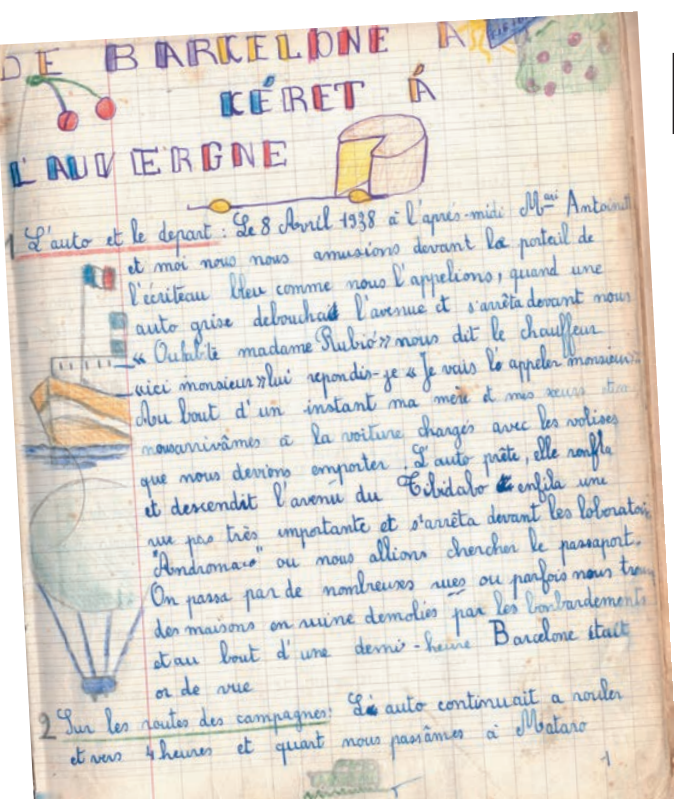 DE BARCELONE A
CÉRET Á
L'AUVERGNE
1 L'auto et le depart : Le 8 Avril 1938 à l'aprés-midi Mari Antoinett
et moi nous nous amusions devant la porteil de
l'ecriteau bleu comme nous l'appelions, quand une
auto grise deboucha l'avenue et s'arrêta devant nous
"Ouhabite madame Rubió" nous dit le chauffeur
"ici monsieur" lui repondis-je "Je vais lé appeler monsieur".
Au bout d'un instant ma mére et mes sœurs
nousarrivâmes à la voiture chargés avec les valises
que nous devions emporter. L'auto prête, elle ronfla
et descendit l'avenu du Tibidabo enfila une
rue pas très importante et s'arrêta devant les laboratoi
"Andromaco" ou nous allions chercher le passaport.
On passa par de nombreuses rues ou parfois nous trouv
des maisons en ruine demolies par les bonbardements
et au bout d'une demi-heure Barcelone était
or de vue
2 Sur les routes des campagnes: L'auto continuait a rouler
et vers 4 heures et quart nous passâmes à Mataro
1